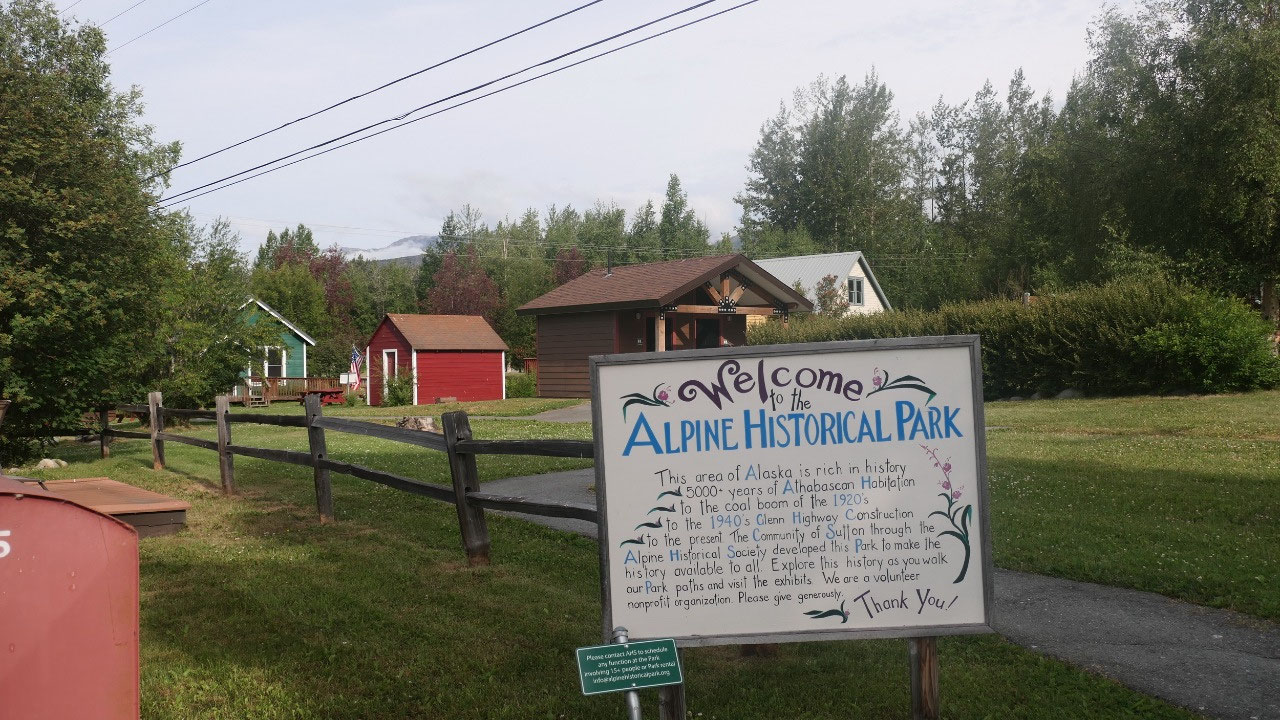 Welcome
to the
ALPINE HISTORICAL PARK
This area of Alaska is rich in history
5000+ years of Athabascan Habitation
to the coal boom of the 1920's
to the 1940's Glenn Highway Construction
to the present The Community of Sutton through the
Alpine Historical Society developed this Park to make the
history available to all. Explore this history as you walk
our Park paths and visit the exhibits. We are a volunteer
nonprofit organization. Please give generously.
Thank You!
Please contact AHS to schedule
any function at the Park
involving 15+ people or Park rental
info@alpinehistoricalpark.org
5